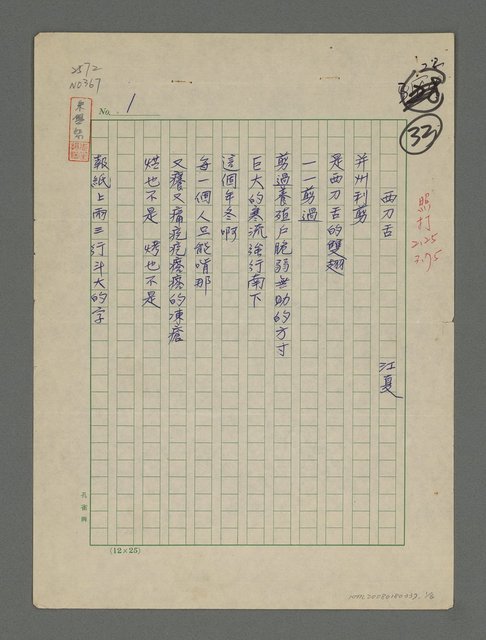 2572
NO367
No. 1
32
照
打
2.25
西刀舌
江夏
并州利剪
是西刀舌的雙翅
一一剪過
剪過養殖戶脆弱無助的方寸
巨大的寒流強行南下
這個年冬啊
每一個人只能啃那
又癢又痛疙疙瘩瘩的凍瘡
烘也不是 烤也不是
報紙上兩三行斗大的字
孔雀牌
(12×25)